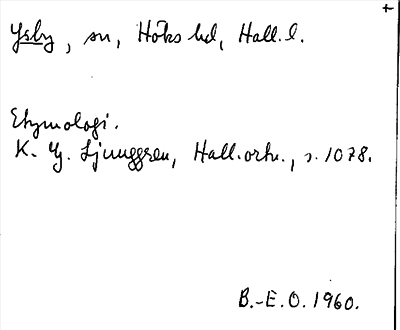 +
Ysby, sn, Höks hd, Hall. l.
Etymologi.
K. G. Ljunggren, Hall. ortn., s. 1078.
B.-E.O. 1960.